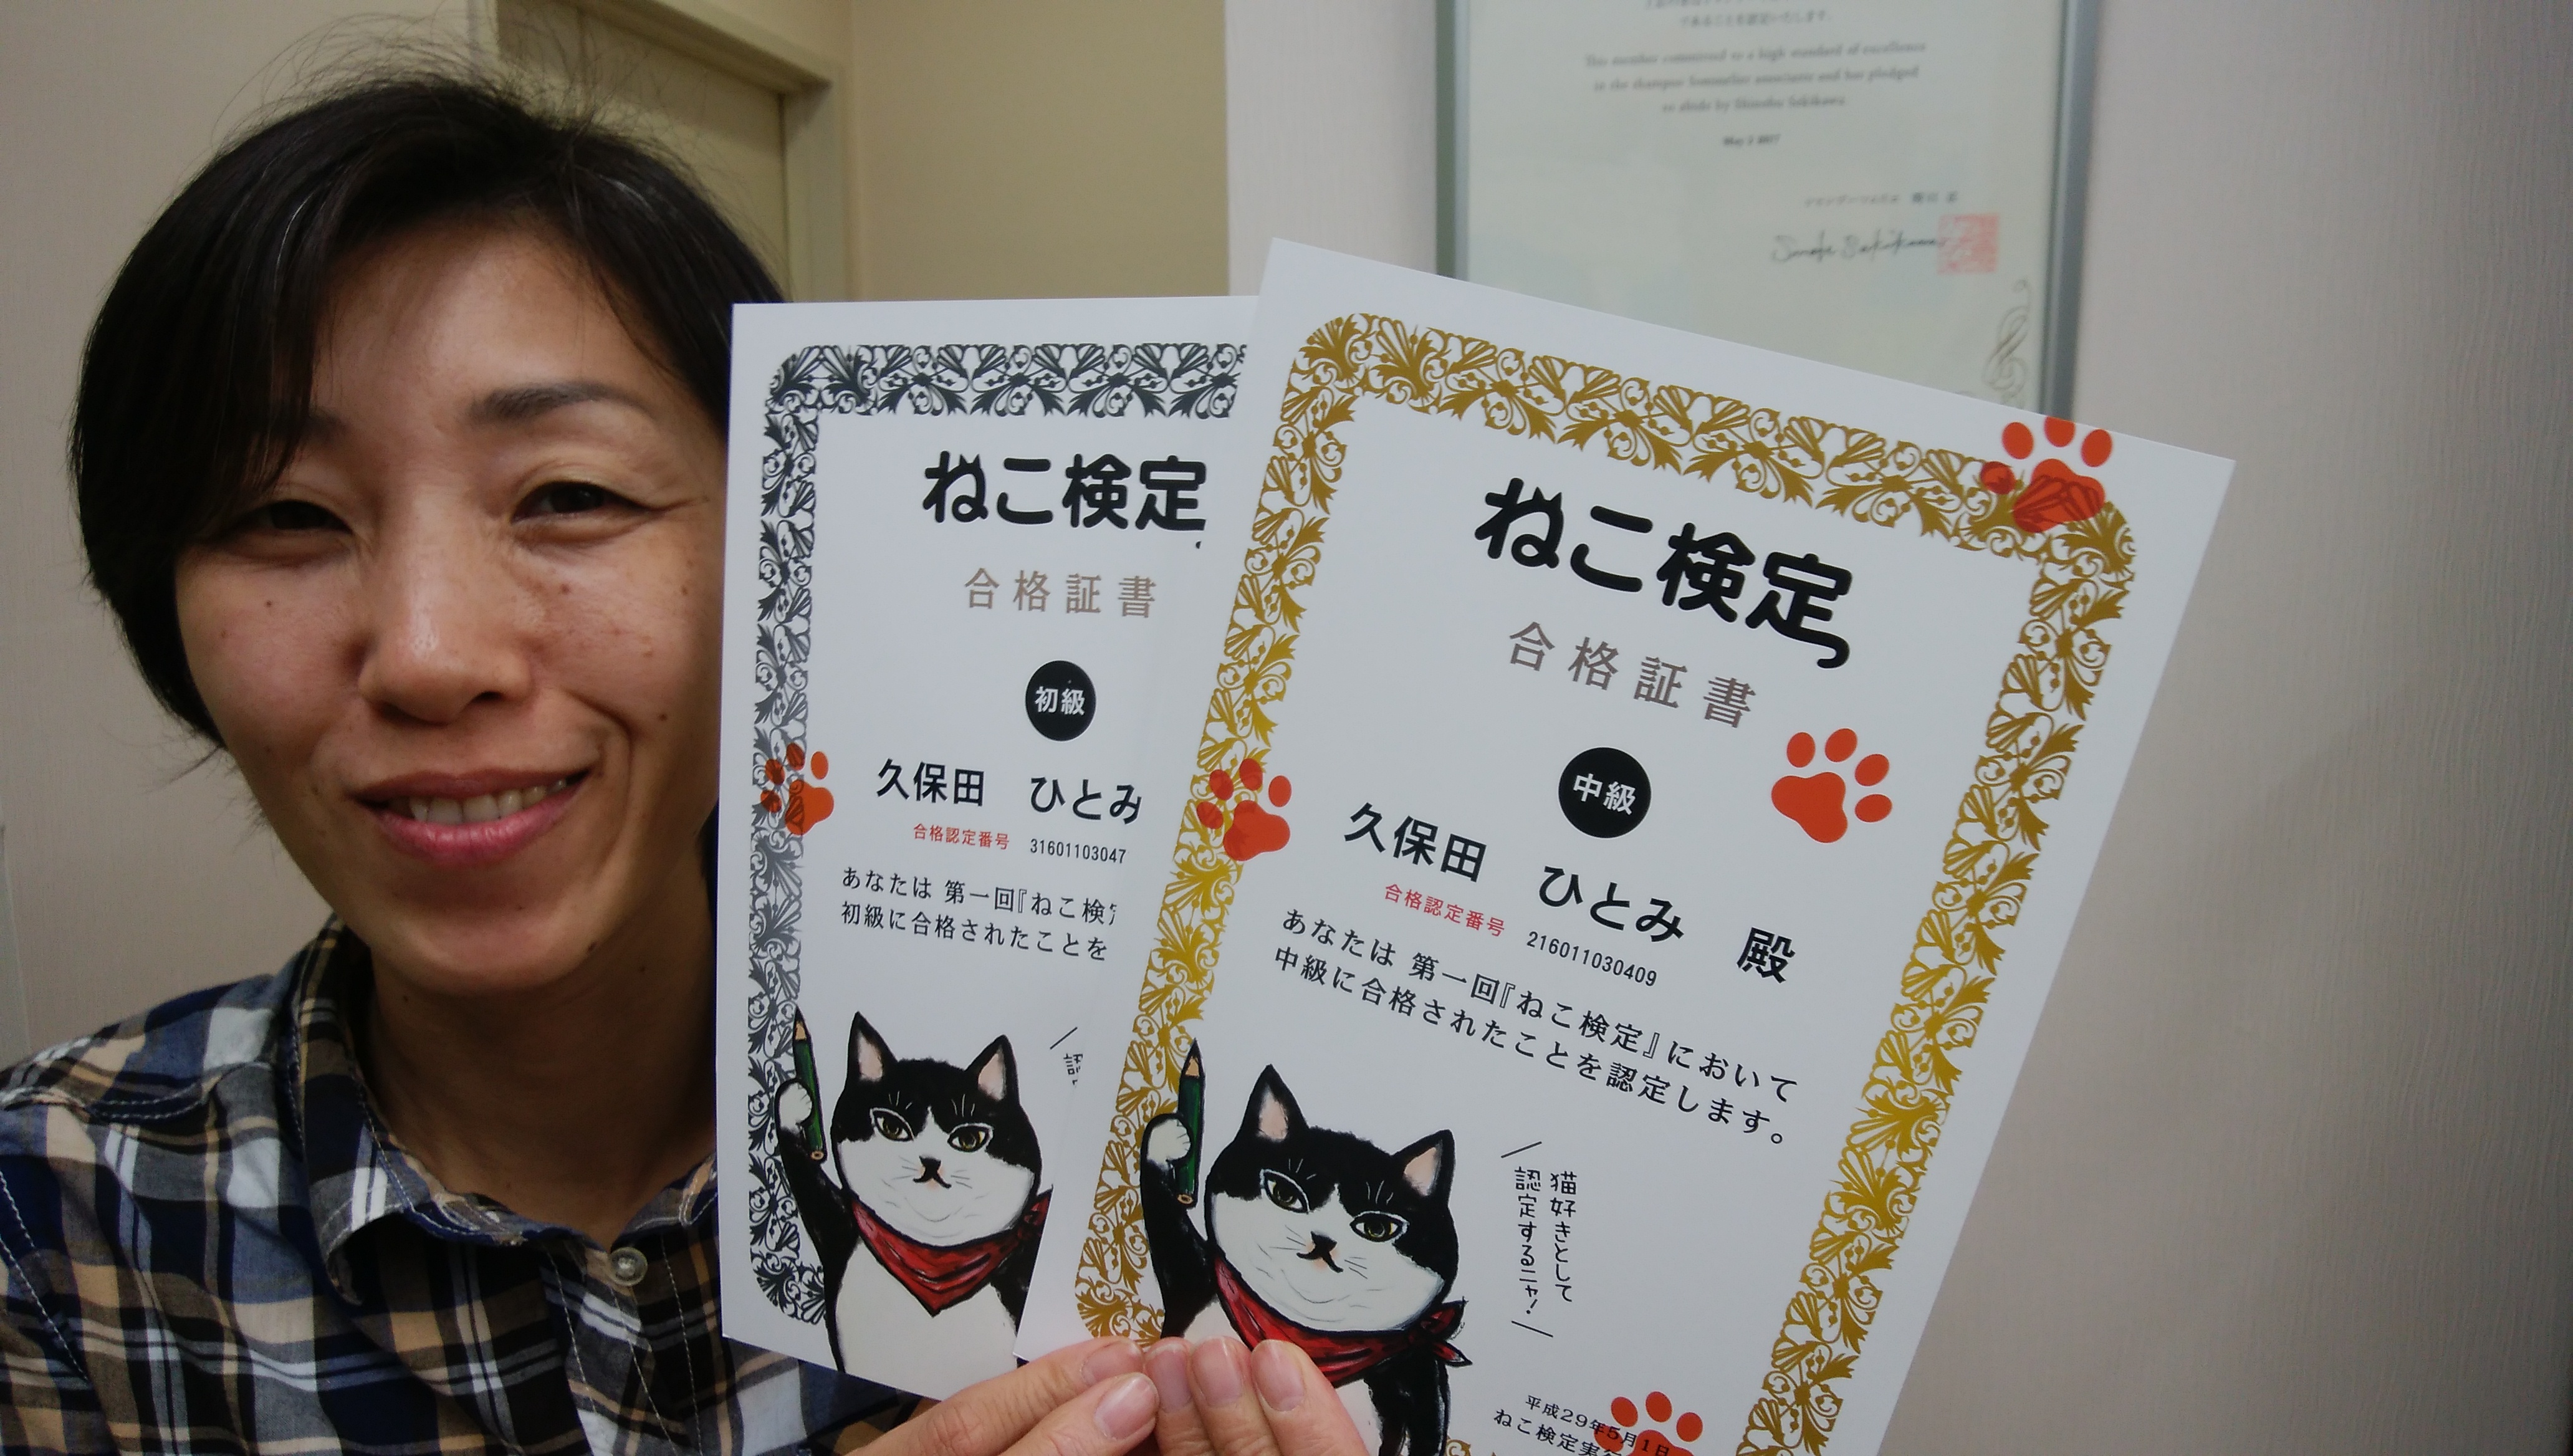 であることを認定いたします。
This member committed to a high standard of excellence
in the shampoo Sommelier associates and has pledged
to abide by Shinobu Sakikawa.
May 2 2017
ねこ検定
合格証書
初級
久保田 ひとみ
合格認定番号 31601103047
あなたは 第一回『ねこ検定
初級に合格されたことを
認
ねこ検定
合格証書
中級
久保田 ひとみ 殿
合格認定番号 216011030409
あなたは 第一回『ねこ検定』において
中級に合格されたことを認定します。
猫好きとして
認定するニャ!
平成29年5月1日
ねこ検定実行